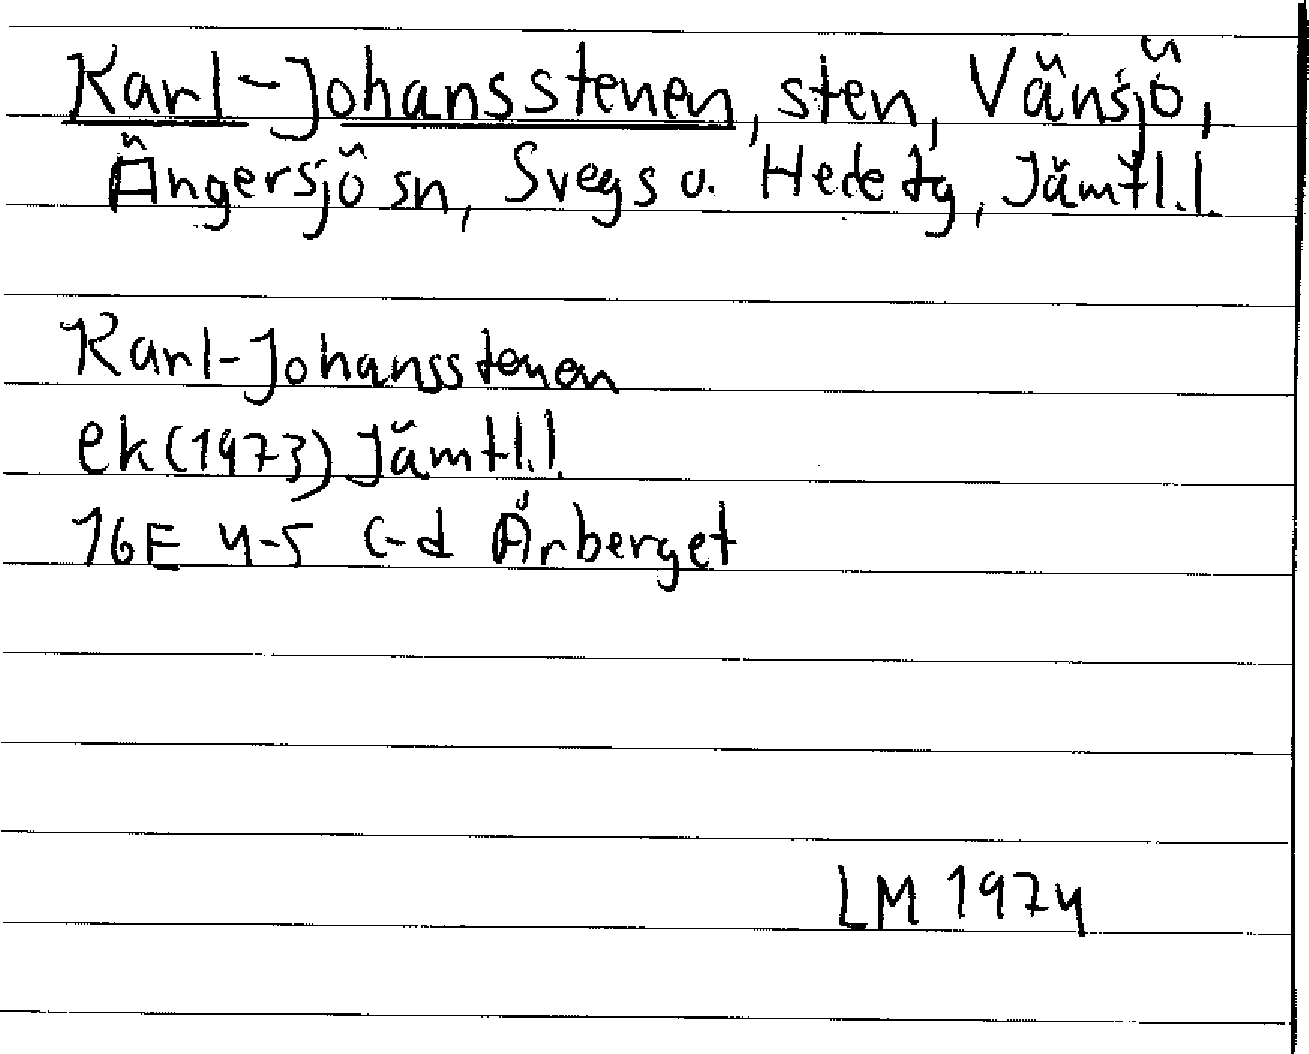 Karl-Johansstenen, sten, Vänsjö,
Ängersjö sn, Svegs o. Hede tg, Jämtl.l.
Karl-Johansstenen
ek (1973) Jämtl.l.
16E 4-5 c-d Årberget
LM 1974